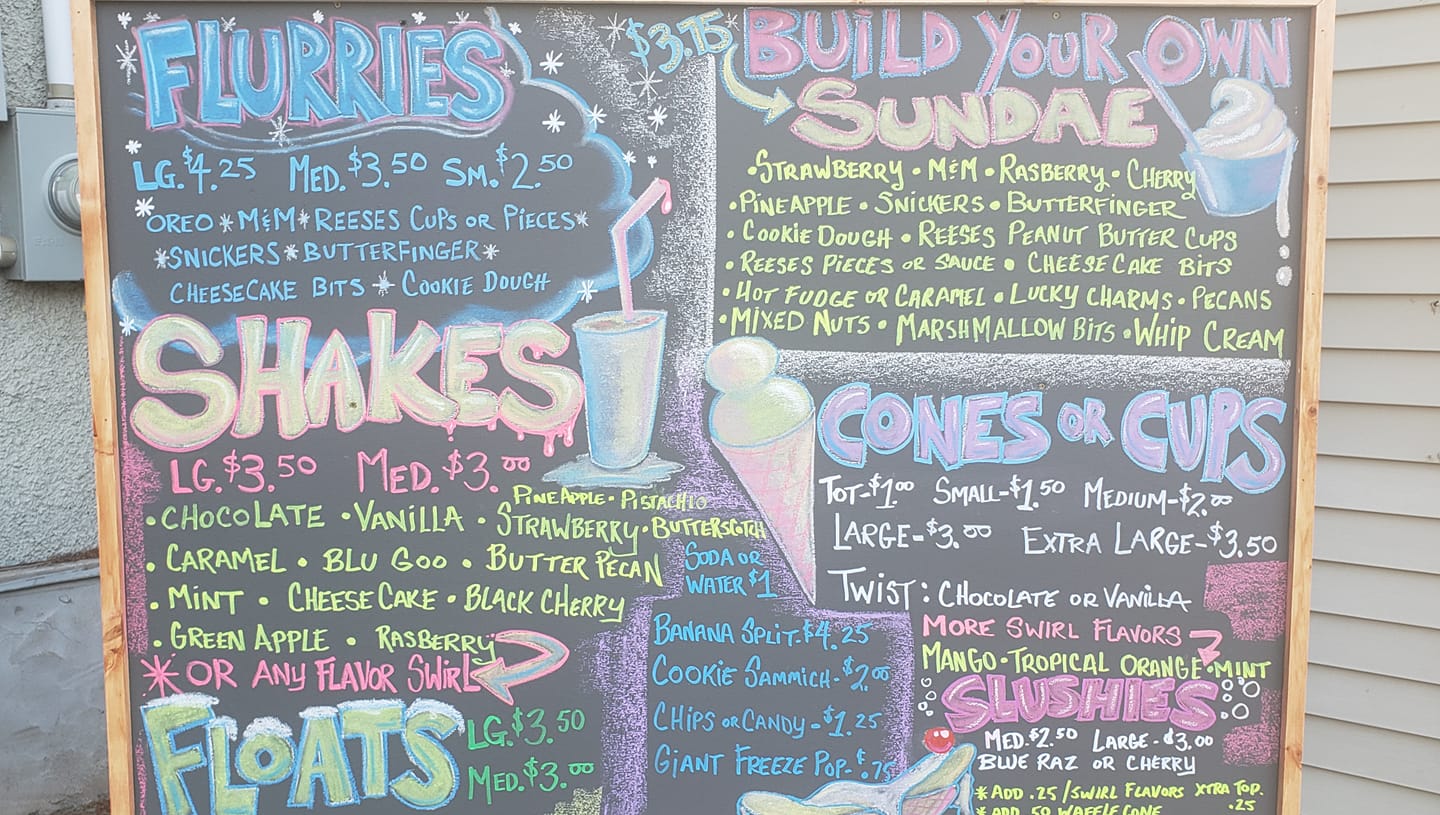 FLURRIES
LG. $4.25 MED. $3.50 SM. $2.50
OREO * M&M * REESES CUPS OR PIECES *
* SNICKERS * BUTTERFINGER *
CHEESECAKE BITS * COOKIE DOUGH
SHAKES
LG. $3.50 MED. $3.00
PINEAPPLE • PISTACHIO
• CHOCOLATE • VANILLA • STRAWBERRY • BUTTERSCOTCH
• CARAMEL • BLU GOO • BUTTER PECAN
• MINT • CHEESECAKE • BLACK CHERRY
• GREEN APPLE • RASBERRY
* OR ANY FLAVOR SWIRL
FLOATS
LG. $3.50
MED. $3.00
$3.75
BUILD YOUR OWN
SUNDAE
• STRAWBERRY • M&M • RASBERRY • CHERRY
• PINEAPPLE • SNICKERS • BUTTERFINGER
• COOKIE DOUGH • REESES PEANUT BUTTER CUPS
• REESES PIECES OR SAUCE • CHEESECAKE BITS
• HOT FUDGE OR CARAMEL • LUCKY CHARMS • PECANS
• MIXED NUTS • MARSHMALLOW BITS • WHIP CREAM
CONES OR CUPS
TOT-$1.00 SMALL-$1.50 MEDIUM-$2.00
LARGE-$3.00 EXTRA LARGE-$3.50
TWIST: CHOCOLATE OR VANILLA
MORE SWIRL FLAVORS
MANGO • TROPICAL ORANGE • MINT
SODA OR
WATER $1
BANANA SPLIT. $4.25
COOKIE SAMMICH - $2.00
CHIPS OR CANDY - $1.25
GIANT FREEZE POP - $.75
SLUSHIES
MED. $2.50 LARGE - $3.00
BLUE RAZ OR CHERRY
* ADD .25 / SWIRL FLAVORS XTRA TOP.
.25
* ADD .50 WAFFLE CONE